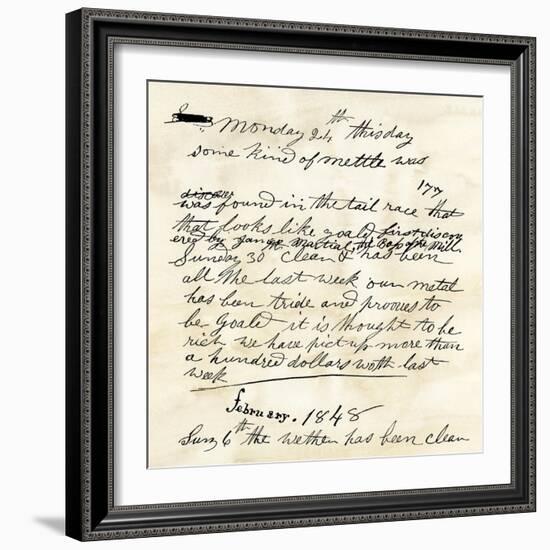 Monday 24th this day
some kind of mettle was
177
was found in the tail race that
that looks like goald first discov
ered by James Martial, the Boss of the Mill.
Sunday 30 clean & has been
all the last week our metal
has been tride and prooves to
be Goald it is thought to be
rich we have pict up more than
a hundred dollars woth last
week
February. 1848
Sun 6th the wether has been clean